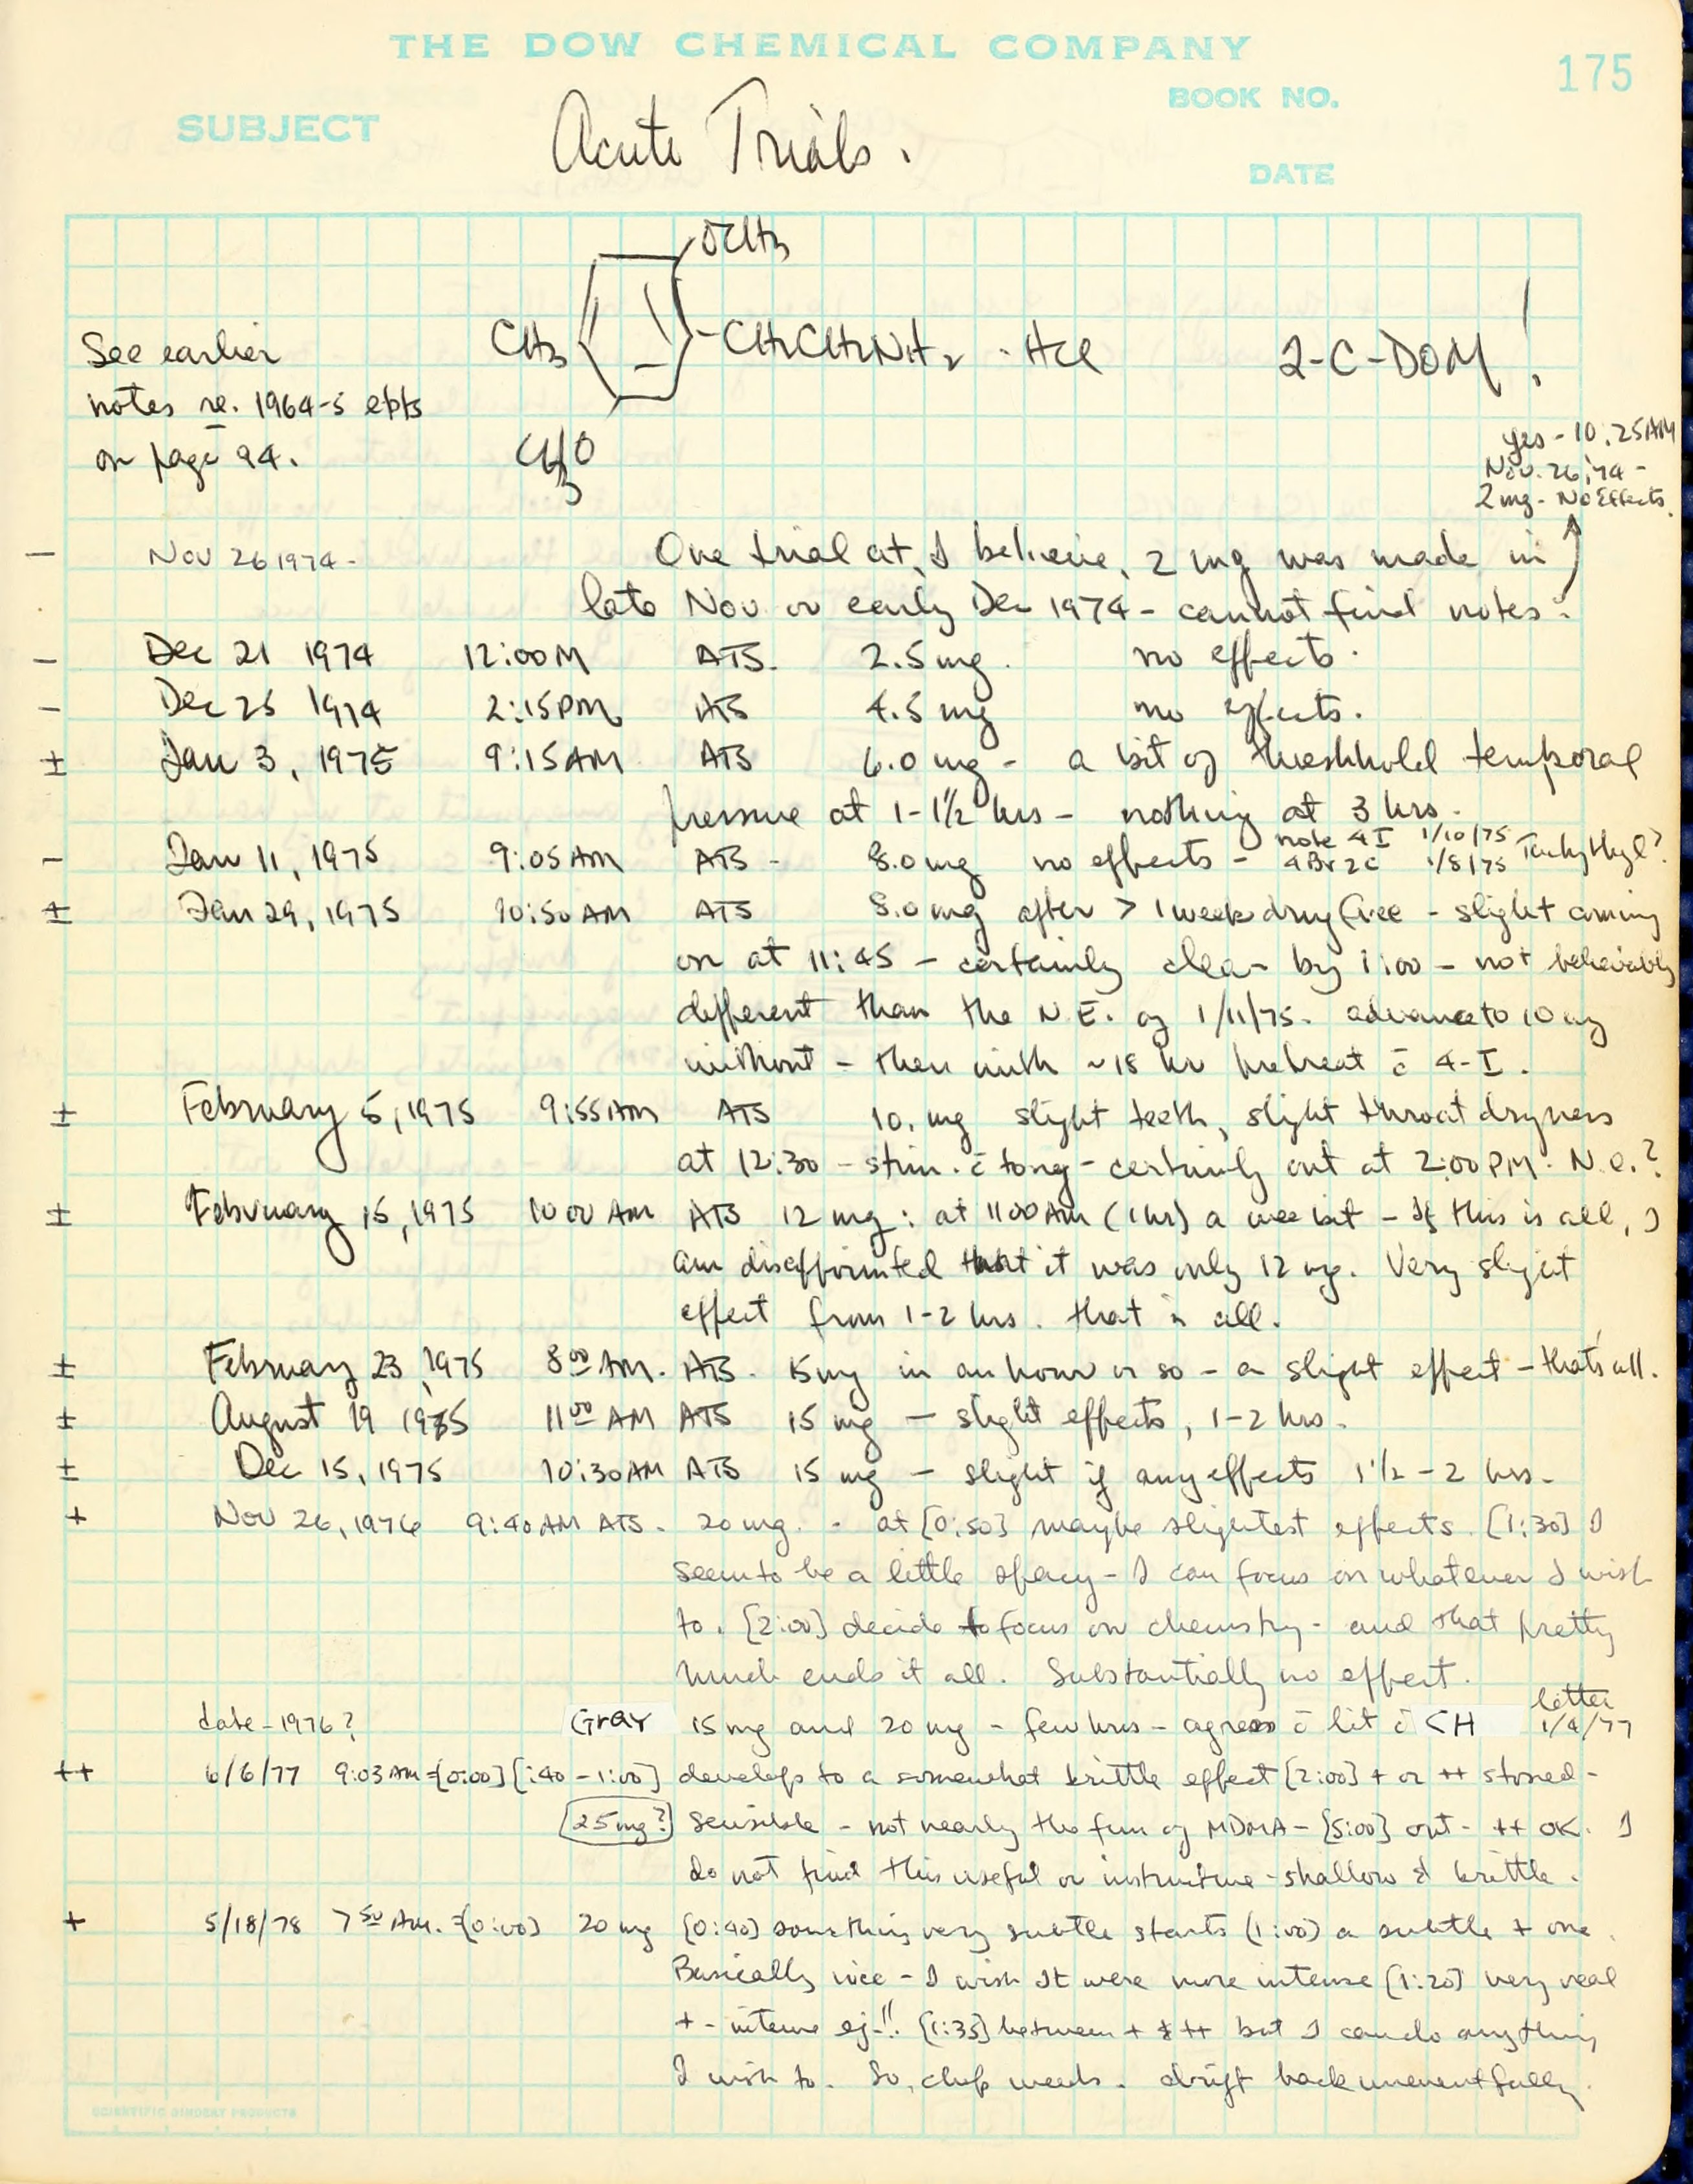 THE DOW CHEMICAL COMPANY
175
BOOK NO.
SUBJECT
Acute Trials.
DATE
OCH3
CH3 -CH2CH2NH2 · HCl 2-C-DOM!
CH3O
See earlier
notes re. 1964-5 expts
on page 94.
yes - 10:25AM
Nov. 26, 74 -
2 mg - No Effects.
— Nov 26 1974 - One trial at, I believe, 2 mg was made in
late Nov or early Dec 1974 - cannot find notes.
— Dec 21 1974 12:00M ATS. 2.5 mg. no effects.
— Dec 25 1974 2:15PM ATS 4.5 mg no effects.
± Jan 3, 1975 9:15AM ATS 6.0 mg - a bit of threshhold temporal
pressure at 1-1½ hrs - nothing at 3 hrs.
note 4I 1/10/75
— Jan 11, 1975 9:05AM ATS - 8.0 mg no effects - 4Br2C 1/8/75
± Jan 29, 1975 10:50AM ATS 8.0 mg after > 1 week drug free - slight coming
on at 11:45 - certainly clear by 1:00 - not believably
different than the N.E. of 1/11/75. advance to 10 mg
without - then with ~18 hr pretreat c̄ 4-I.
± February 5, 1975 9:55AM ATS 10. mg slight teeth, slight throat dryness
at 12:30 - stim. c̄ - certainly out at 2:00PM. N.e.?
± February 15, 1975 10 00 AM ATS 12 mg: at 1100 AM (1 hr) a wee bit - If this is all, I
am disappointed that it was only 12 mg. Very slight
effect from 1-2 hrs. that is all.
± February 23, 1975 8 00 AM. ATS. 15 mg in an hour or so - a slight effect - that's all.
± August 19 1975 11 00 AM ATS 15 mg - slight effects, 1-2 hrs.
± Dec 15, 1975 10:30AM ATS 15 mg - slight if any effects 1½-2 hrs.
+ Nov 26, 1976 9:40AM ATS. 20 mg. - at [0:50] maybe slightest effects. [1:30] I
seem to be a little spacy - I can focus on whatever I wish
to. [2:00] decide to focus on chemistry - and that pretty
much ends it all. Substantially no effect.
letter
date - 1976? Gray 15 mg and 20 mg - few hrs - agrees c̄ lit c̄ CH 1/4/77
++ 6/6/77 9:03AM =[0:00] [:40 - 1:00] develops to a somewhat brittle effect [2:00] + or ++ stoned -
[25 mg?] sensible - not nearly the fun of MDMA - [5:00] out - ++ OK. I
do not find this useful or instructive - shallow & brittle.
+ 5/18/78 7 50 AM. =[0:00] 20 mg [0:40] something very subtle starts (1:00) a subtle + one.
Basically nice - I wish it were more intense [1:20] very real
+ - intense ej-!! [1:35] between + & ++ but I can do anything
I wish to. So, chop weeds. drift back uneventfully.
SCIENTIFIC BINDERY PRODUCTS